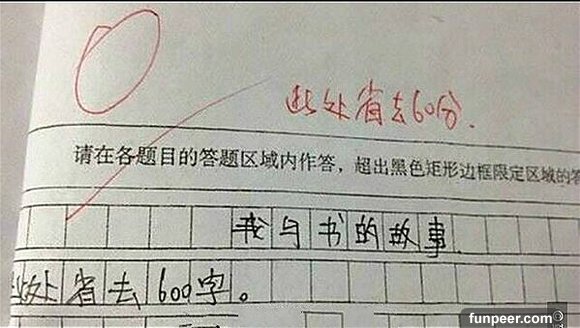 0
此处省去60分.
请在各题目的答题区域内作答，超出黑色矩形边框限定区域的答
我与书的故事
此处省去600字。
funpeer.com